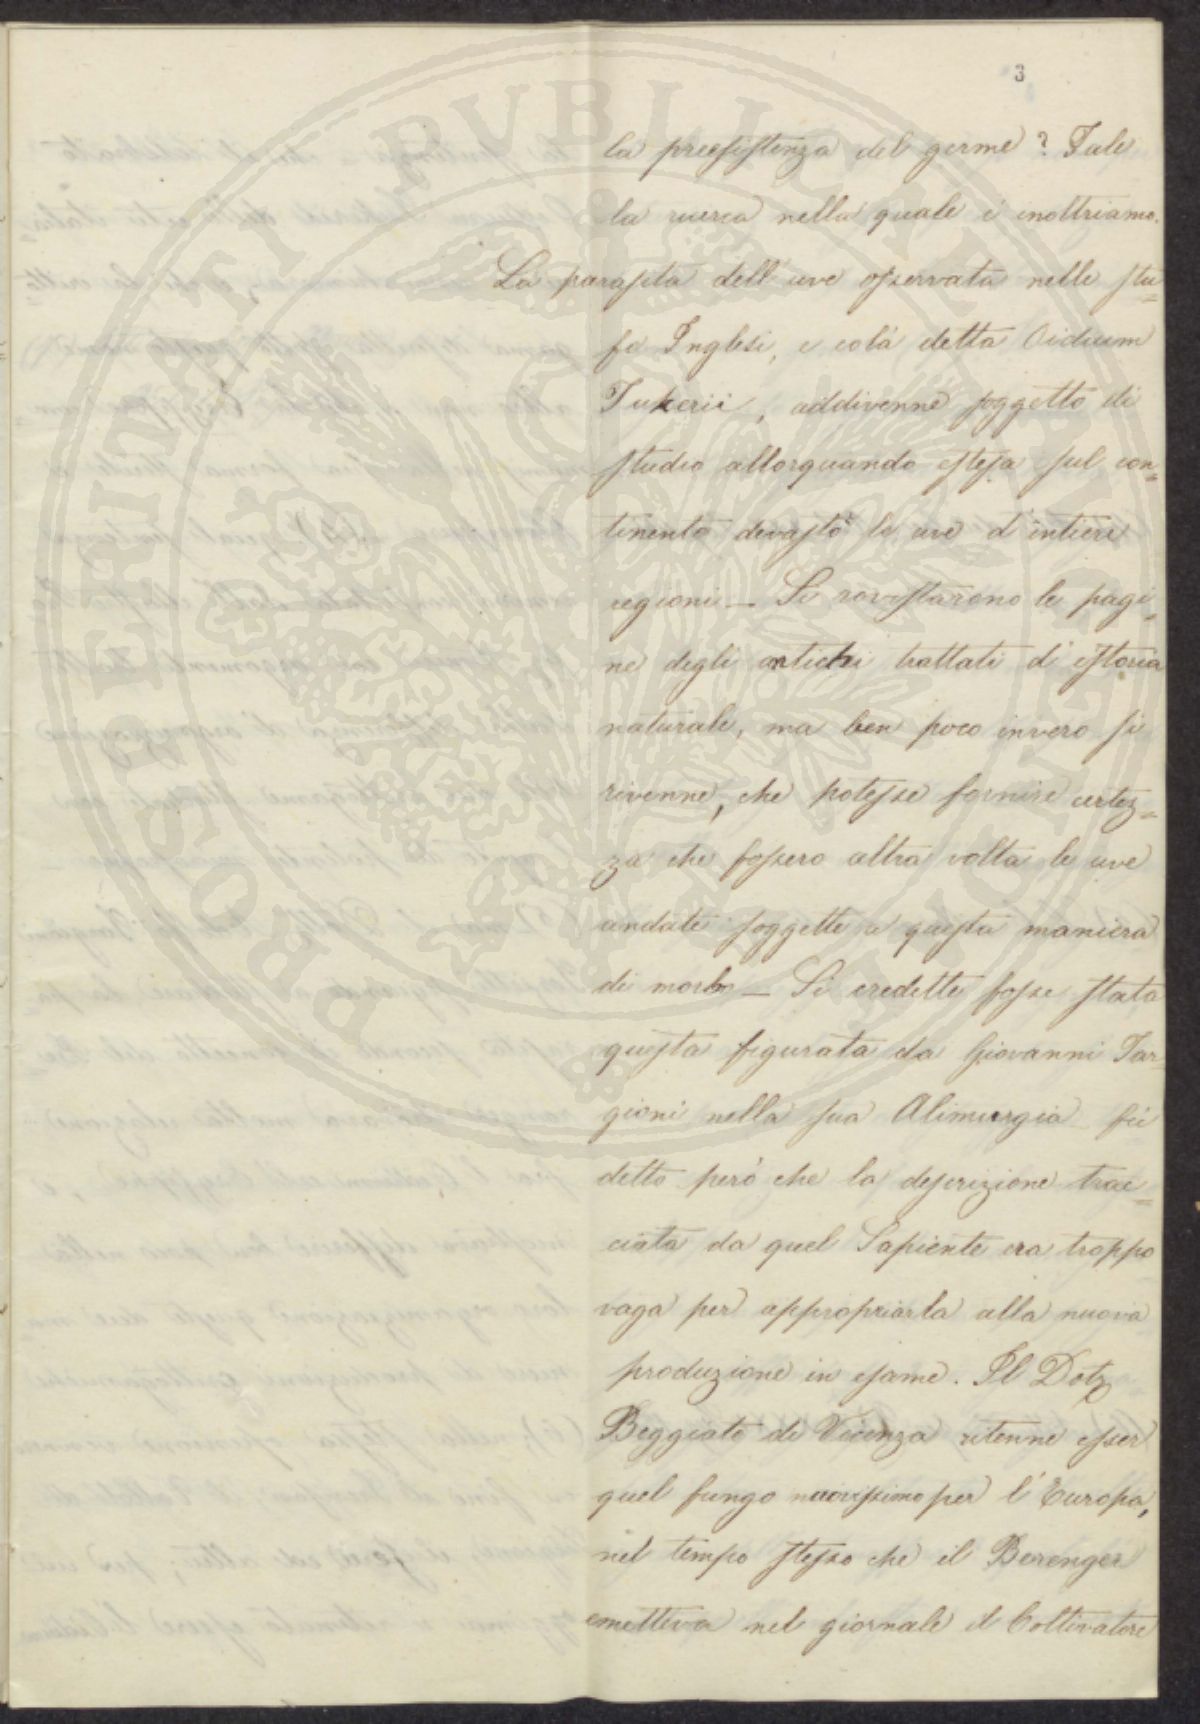 3
la preesistenza del germe? Tale
la ricerca nella quale c'inoltriamo.
La parasita dell'uve osservata nelle stu=
fe Inglesi, e colà detta Oidium
Tukerii, addivenne soggetto di
studio allorquando estesa sul con=
tinente devastò le uve d'intiere
regioni — Si rovistarono le pagi=
ne degli antichi trattati di istoria
naturale, ma ben poco invero si
rivenne, che potesse fornire certez=
za che fossero altra volta le uve
andate soggette a questa maniera
di morbo — Si credette fosse stata
questa figurata da Giovanni Tar=
gioni nella sua Alimurgia fù
detto però che la descrizione trac=
ciata da quel Sapiente era troppo
vaga per appropriarla alla nuova
produzione in esame. Il Dotr
Beggiato di Vicenza ritenne esser
quel fungo nuovissimo per l'Europa,
nel tempo stesso che il Berenger
emetteva nel giornale il Coltivatore
PROSPERITATI PUBLICAE AUGENDAE